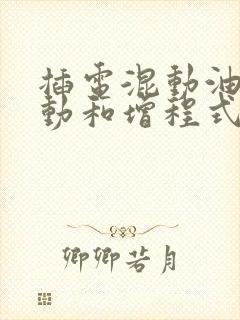 插電混動油
動和增程式
卿卿若月